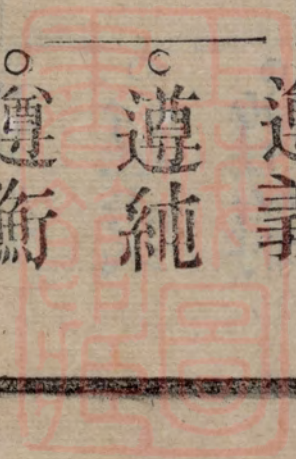 遵義
遵純
遵衡